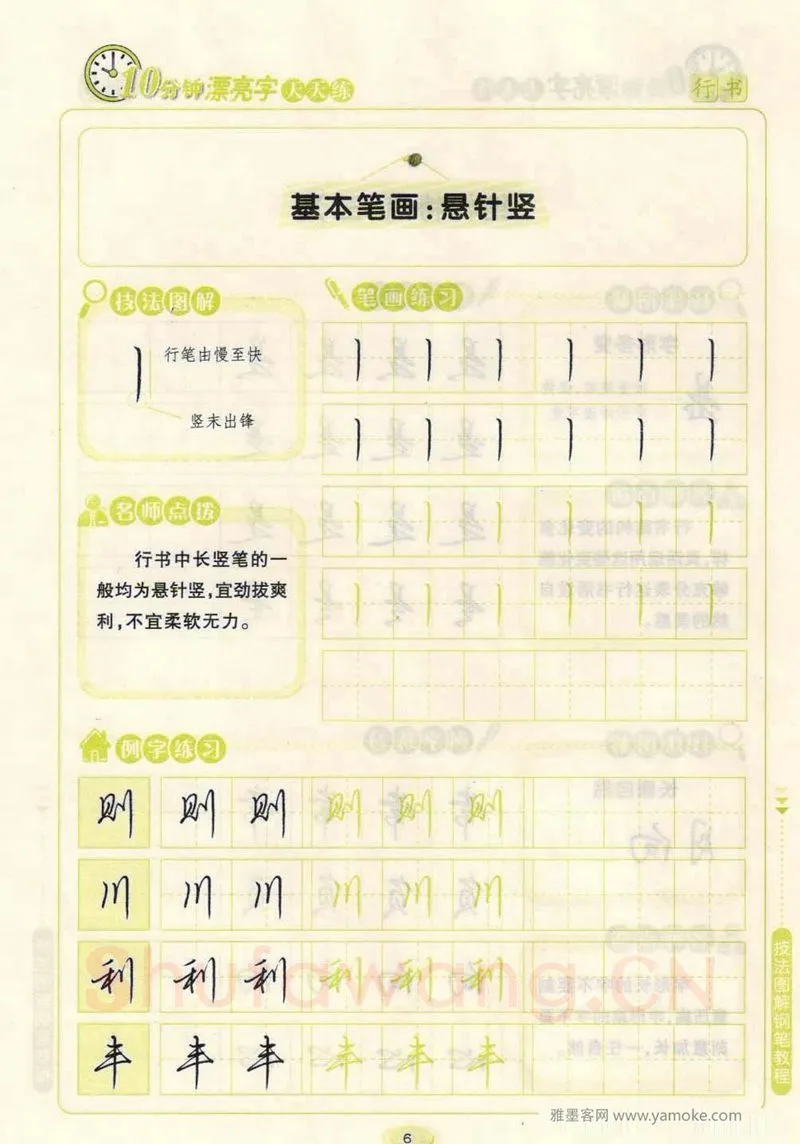 10分钟漂亮字天天练
行书
基本笔画：悬针竖
技法图解
行笔由慢至快
竖末出锋
笔画练习
名师点拨
行书中长竖笔的一
般均为悬针竖，宜劲拔爽
利，不宜柔软无力。
例字练习
则 则 则 则 则 则
川 川 川 川 川 川
利 利 利 利 利 利
丰 丰 丰 丰 丰 丰
Shufawang.CN
技法图解钢笔教程
雅墨客网 www.yamoke.com
6